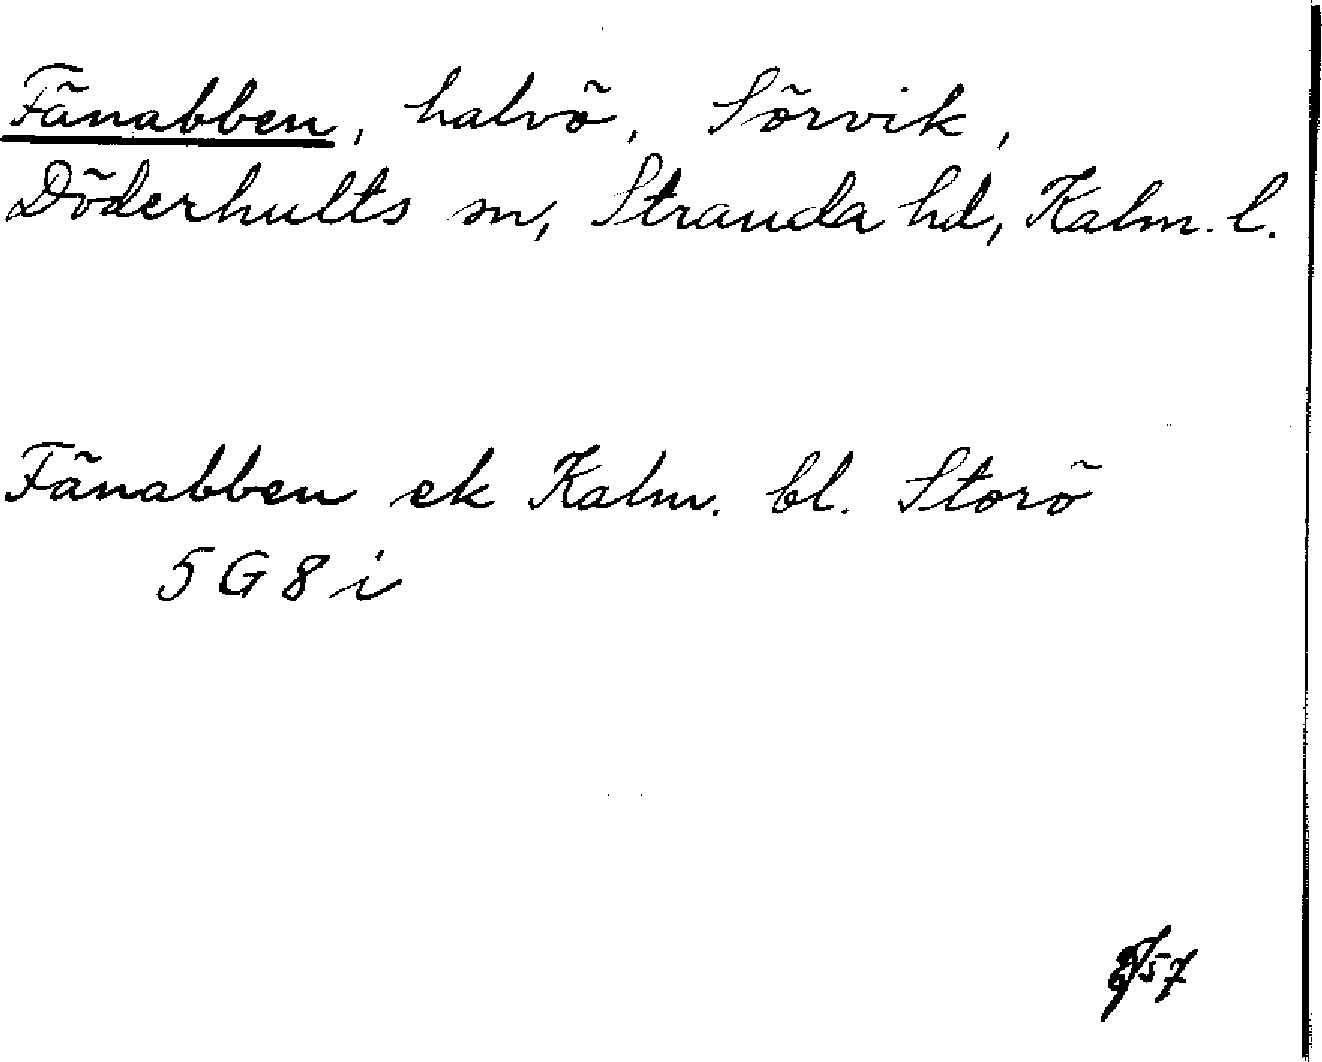 Fänabben, halvö, Sörvik,
Döderhults sn, Stranda hd, Kalm. l.
Fänabben ek Kalm. bl. Storö
5 G 8 i